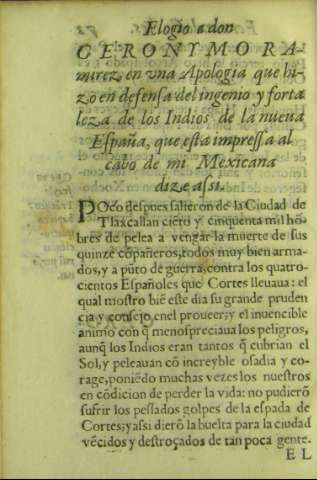 Elogio a don
GERONYMO RA-
mirez en vna Apologia que hi-
zo en defensa del ingenio y forta
leza de los Indios de la nueua
España, que esta impressa al
cabo de mi Mexicana
dize assi.
POco despues salieron de la Ciudad de
Tlaxcallan ciẽto y cinquenta mil hõ
bres de pelea a vengar la muerte de sus
quinze cõpañeros, todos muy bien arma-
dos, y a pũto de guerra, contra los quatro-
cientos Españoles que Cortes lleuaua: el
qual mostro biẽ este dia su grande pruden
cia y consejo, enel proueer; y el inuencible
animo con q̃ menospreciaua los peligros,
aunq̃ los Indios eran tantos q̃ cubrian el
Sol, y peleauan cõ increyble osadia y co-
rage, poniẽdo muchas vezes los nuestros
en cõdicion de perder la vida: no pudierõ
sufrir los pesados golpes de la espada de
Cortes; y assi dierõ la buelta para la ciudad
vẽcidos y destroçados de tan poca gente.
EL